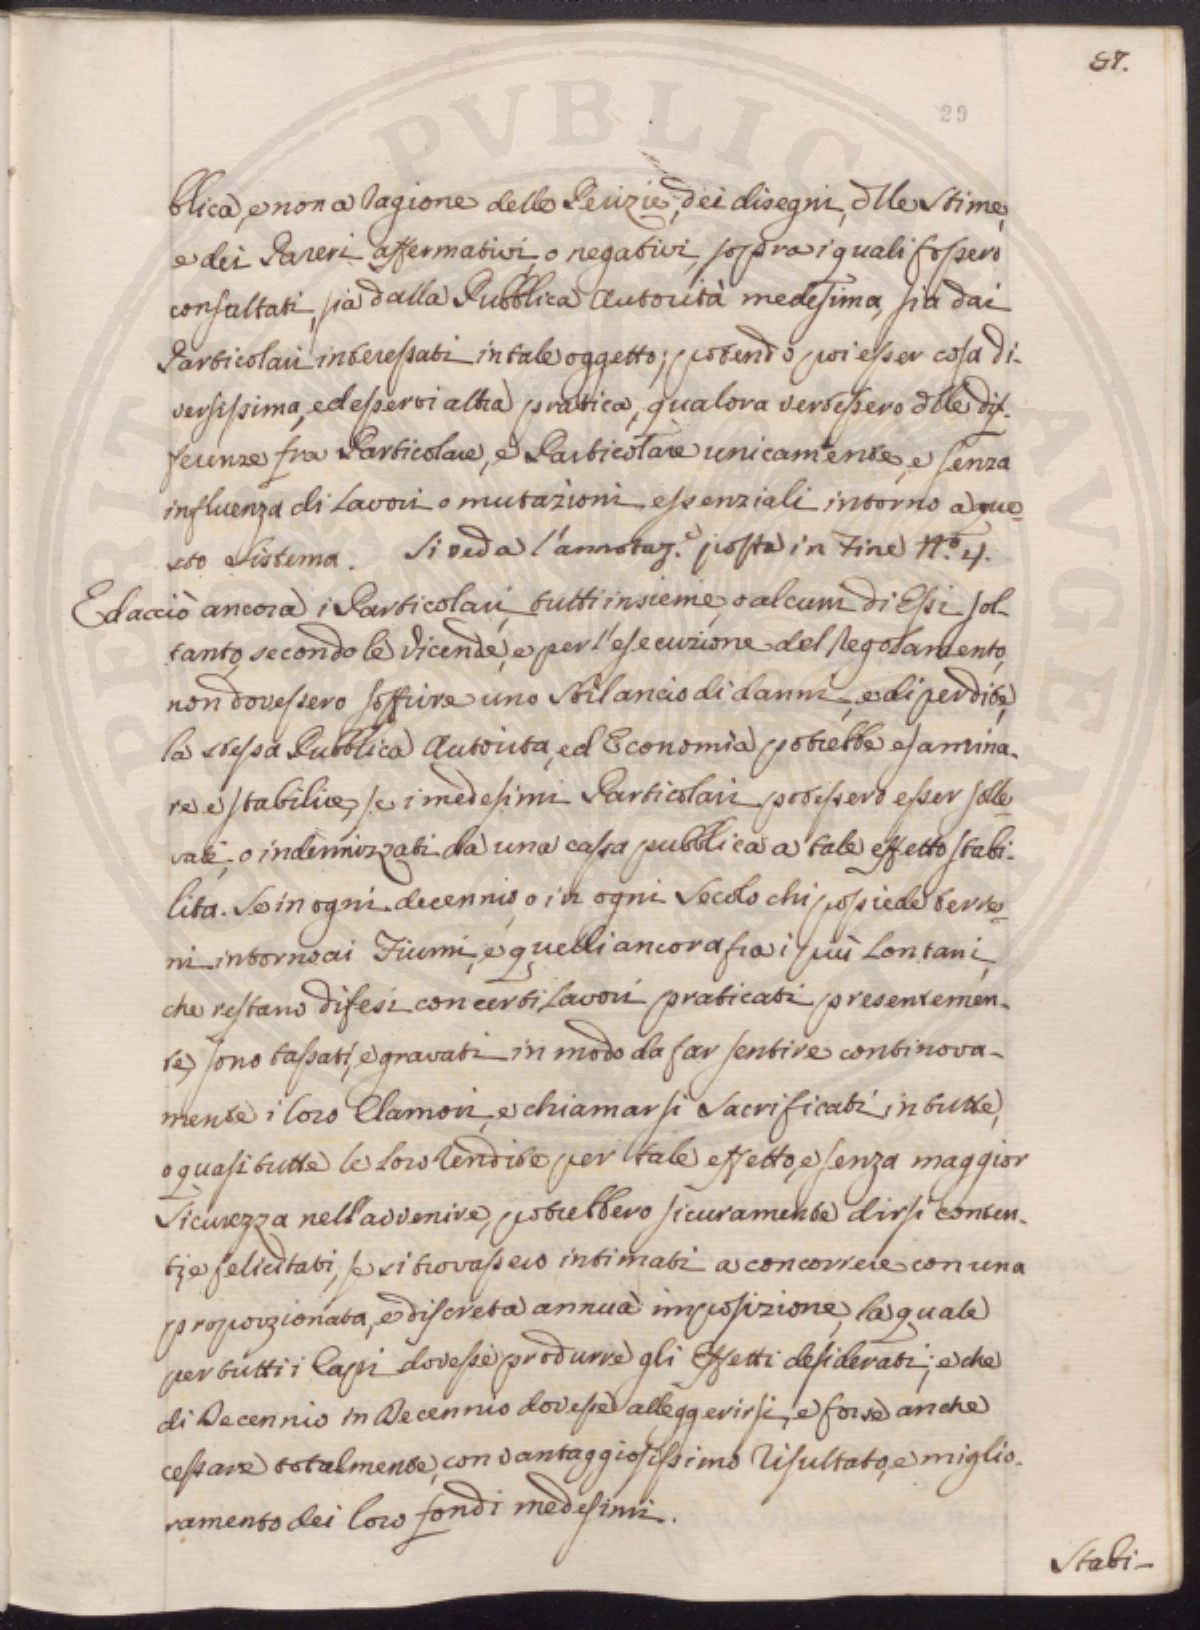 57.
29
blica, e non a ragione delle Perizie, dei disegni, dlle Stime,
e dei Pareri affermativi, o negativi, sopra i quali fossero
consultati, sia dalla Pubblica Autorità medesima, sia dai
Particolari interessati in tale oggetto; potendo poi esser cosa di-
versissima, ed esservi altra pratica, qualora vertessero dlle dif-
ferenze fra Particolare, e Particolare unicamente, e senza
influenza di Lavori o mutazioni essenziali intorno a que-
sto Sistema. Si veda l'annotaz.e posta in Fine N.o 4.
Ed acciò ancora i Particolari, tutti insieme, o alcuni di Essi sol-
tanto, secondo le Vicende, e per l'esecuzione del Regolamento,
non dovessero soffrire uno Sbilancio di danni, e di perdite,
la stessa Pubblica Autorità, ed Economia potrebbe esamina-
re e stabilire, se i medesimi Particolari potessero esser solle-
vati, o indennizzati da una cassa pubblica a tale effetto stabi-
lita. Se in ogni decennio, o in ogni Secolo chi possiede terre-
ni intorno ai Fiumi, e quelli ancora fra i più Lontani,
che restano difesi con certi Lavori praticati presentemen-
te, sono tassati, e gravati in modo da far sentire continova-
mente i loro Clamori, e chiamarsi Sacrificati in tutte,
o quasi tutte le loro rendite per tale effetto, e senza maggior
Sicurezza nell'avvenire, potrebbero sicuramente dirsi conten-
ti, e felicitati, se si trovassero intimati a concorrere con una
proporzionata, e discreta annua imposizione, la quale
per tutti i Capi dovesse produrre gli Effetti desiderati; e che
di Decennio in Decennio dovesse alleggerirsi, e forse anche
cessare totalmente, con vantaggiosissimo risultato, e miglio-
ramento dei loro fondi medesimi.
Stabi-